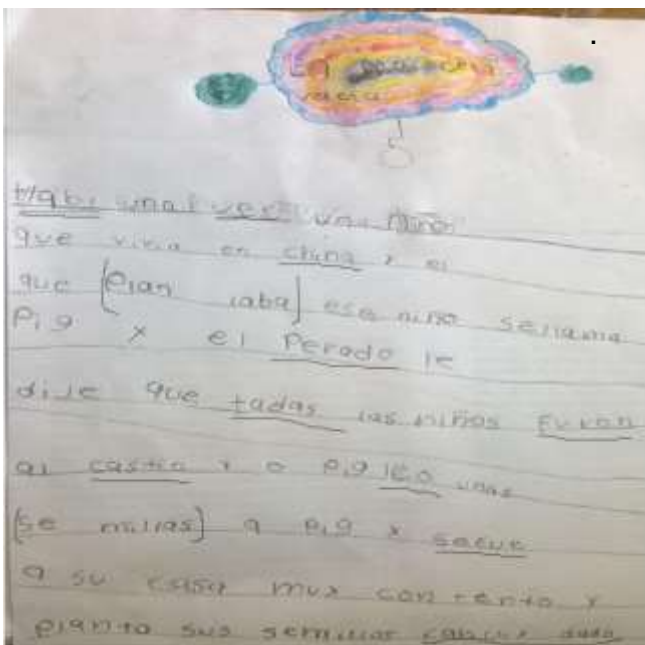 La
Habi una vez una niños
que vivia en china y el
que [plan taba] ese niño sellama
Pig y el Perado le
dije que tadas las niños Fueron
al castio y a Pig leo unas
[se millas] a Pig y
a su casa mux contento y
planto sus semillas